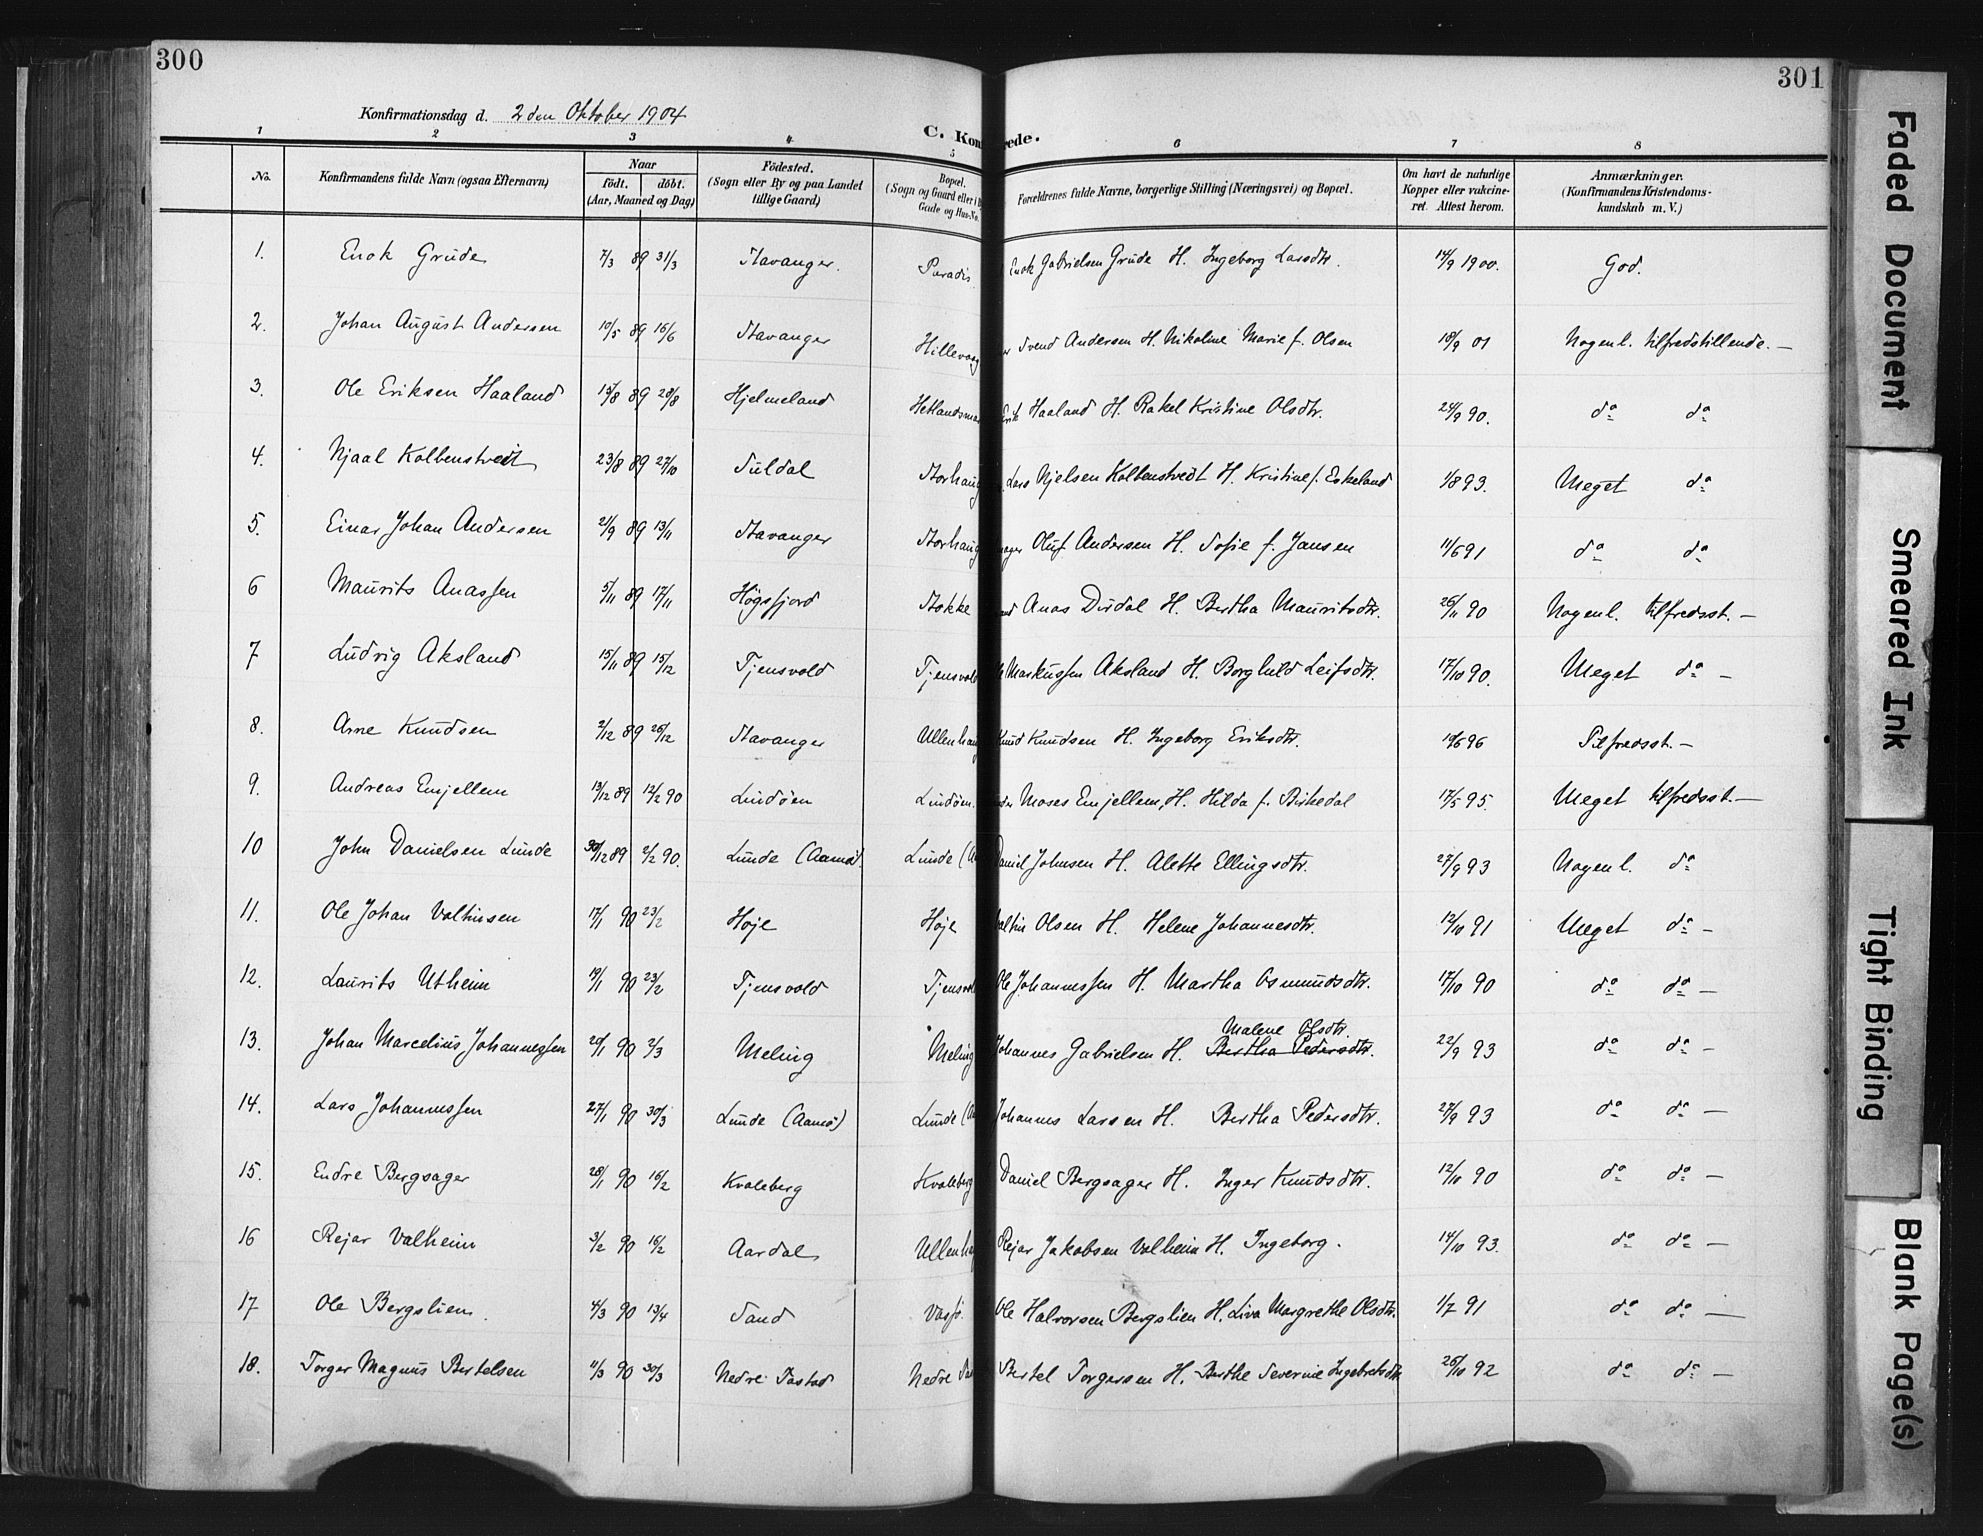 300
301
Konfirmationsdag d. 2 den Oktober 1904
C. Kon rede.
1 2 3 4 5 6 7 8
No. Konfirmandens fulde Navn (ogsaa Efternavn) Naar födt. döbt. (Aar, Maaned og Dag) Födested. (Sogn eller By og paa Landet tillige Gaard) Bopæl. (Sogn og Gaard eller i Gade og Hus-No. Forældrenes fulde Navne, borgerlige Stilling (Næringsvei) og Bopæl. Om havt de naturlige Kopper eller vakcineret. Attest herom. Anmærkninger. (Konfirmandens Kristendomskundskab m. V.)
1. Enok Grude 7/3 89 31/3 Stavanger. Paradis Enok Gabrielsen Grude H. Ingeborg Larsdtr. 14/9 1900. God.
2. Johan August Andersen 10/5 89 16/6 Stavanger Hillevaag Svend Andersen H. Nikoline Marie f. Olsen 18/9 01 Nogenl. tilfredstillende. —
3. Ole Eriksen Haaland 15/8 89 28/8 Hjelmeland Hetlandsmar Erik Haaland H. Rakel Kristine Olsdtr. 24/9 90. do do
4. Njaal Kolbenstvedt 23/8 89 27/10 Suldal Storhaug Lars Njelsen Kolbenstvedt H. Kristine f. Eskeland 1/8 93. Meget do
5. Einar Johan Andersen 21/9 89 13/11 Stavanger Storhaug Oluf Andersen H. Sofie f. Jansen 11/6 91 do do
6 Maurits Anassen 5/11 89 17/11 Høgsfjord Stokke Anas Dudal H. Bertha Mauritsdtr. 26/11 90 Nogenl. tilfredsst. —
7 Ludvig Aksland 15/11 89 15/12 Tjensvold Tjensvold Markussen Aksland H. Borghild Leifsdtr. 17/10 90. Meget do —
8. Arne Knudsen 2/12 89 26/12 Stavanger Ullenhaug Knud Knudsen H. Ingeborg Eriksdtr. 19/6 96 Tilfredsst. —
9. Andreas Emjellem 13/12 89 12/2 90 Lindøen Lindøen. Moses Emjellem, H. Hilda f. Birkedal 17/5 95. Meget tilfredsst. —
10 John Danielsen Lunde 30/12 89 2/2 90. Lunde (Aamø). Lunde (A Daniel Johnsen H. Alette Ellingsdtr. 27/9 93 Nogenl. do
11. Ole Johan Valtinsen 17/1 90 23/2 Høje Høje Valtin Olsen H. Helene Johannesdtr. 12/10 91 Meget do —
12. Laurits Utheim 19/1 90 23/2 Tjensvold Tjensvol Ole Johannessen H. Martha Osmundsdtr. 17/10 90 do do —
Malene Olsdtr.
13. Johan Marcelius Johannessen 20/1 90 2/3 Meling Meling Johannes Gabrielsen H. Bertha Pedersdtr. 22/9 93 do do —
14. Lars Johannessen 27/1 90 30/3 Lunde (Aamø) Lunde (A Johannes Larsen H. Bertha Pedersdtr. 27/9 93 do do —
15. Endre Bergsager 28/1 90 16/2 Kvaleberg Kvaleberg Daniel Bergsager H. Inger Knudsdtr. 12/10 90 do do —
16 Rejar Valheim 3/2 90 16/2 Aardal Ullenha Rejar Jakobsen Valheim H. Ingeborg. 14/10 93. do do —
17 Ole Bergslien. 4/3 90 13/4 Sand Vasø. Ole Halvorsen Bergslien H. Liva Margrethe Olsdtr. 1/7 91 do do —
18. Torger Magnus Bertelsen 11/3 90 30/3 Nedre Tastad Nedre Tas Bertel Torgersen H. Berthe Severine Ingebretsdtr 26/10 92 do do —
Faded Document
Smeared Ink
Tight Binding
Blank Page(s)